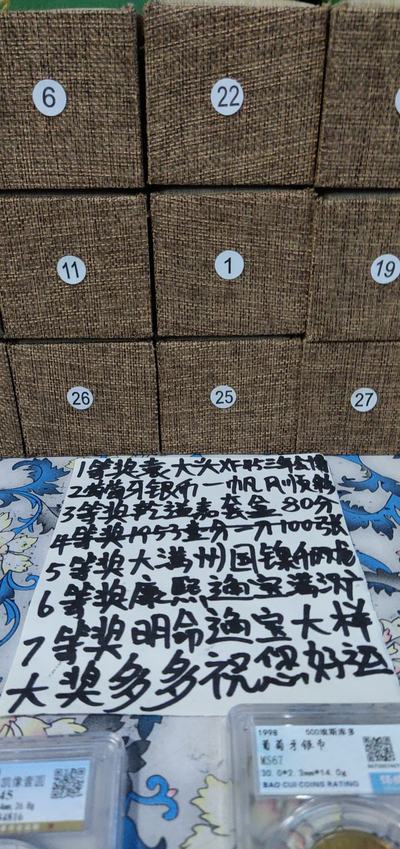 6
22
11
1
19
26
25
27
1等奖袁大头XF45三年金
2等奖牙银币一帆风顺
3等奖乾道嘉套盒80分
4等奖1953壹分一刀100张
5等奖大满州国镍币
6等奖康熙通宝满汉
7等奖明命通宝大样
大奖多多祝您好运
凯像壹圆
45
26.8g
34816
1998 500埃斯库多
葡萄牙银币
MS67
30.0*2.3mm*14.0g
BAO CUI COING RATING